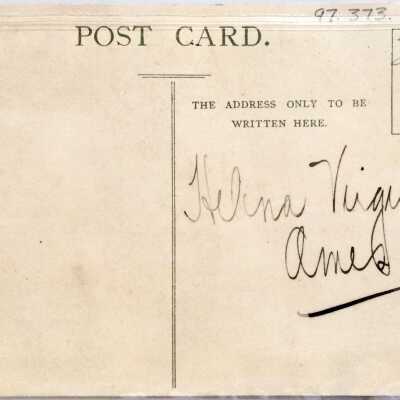 97.373.
POST CARD.
THE ADDRESS ONLY TO BE
WRITTEN HERE.
Helena Virgi
Ames